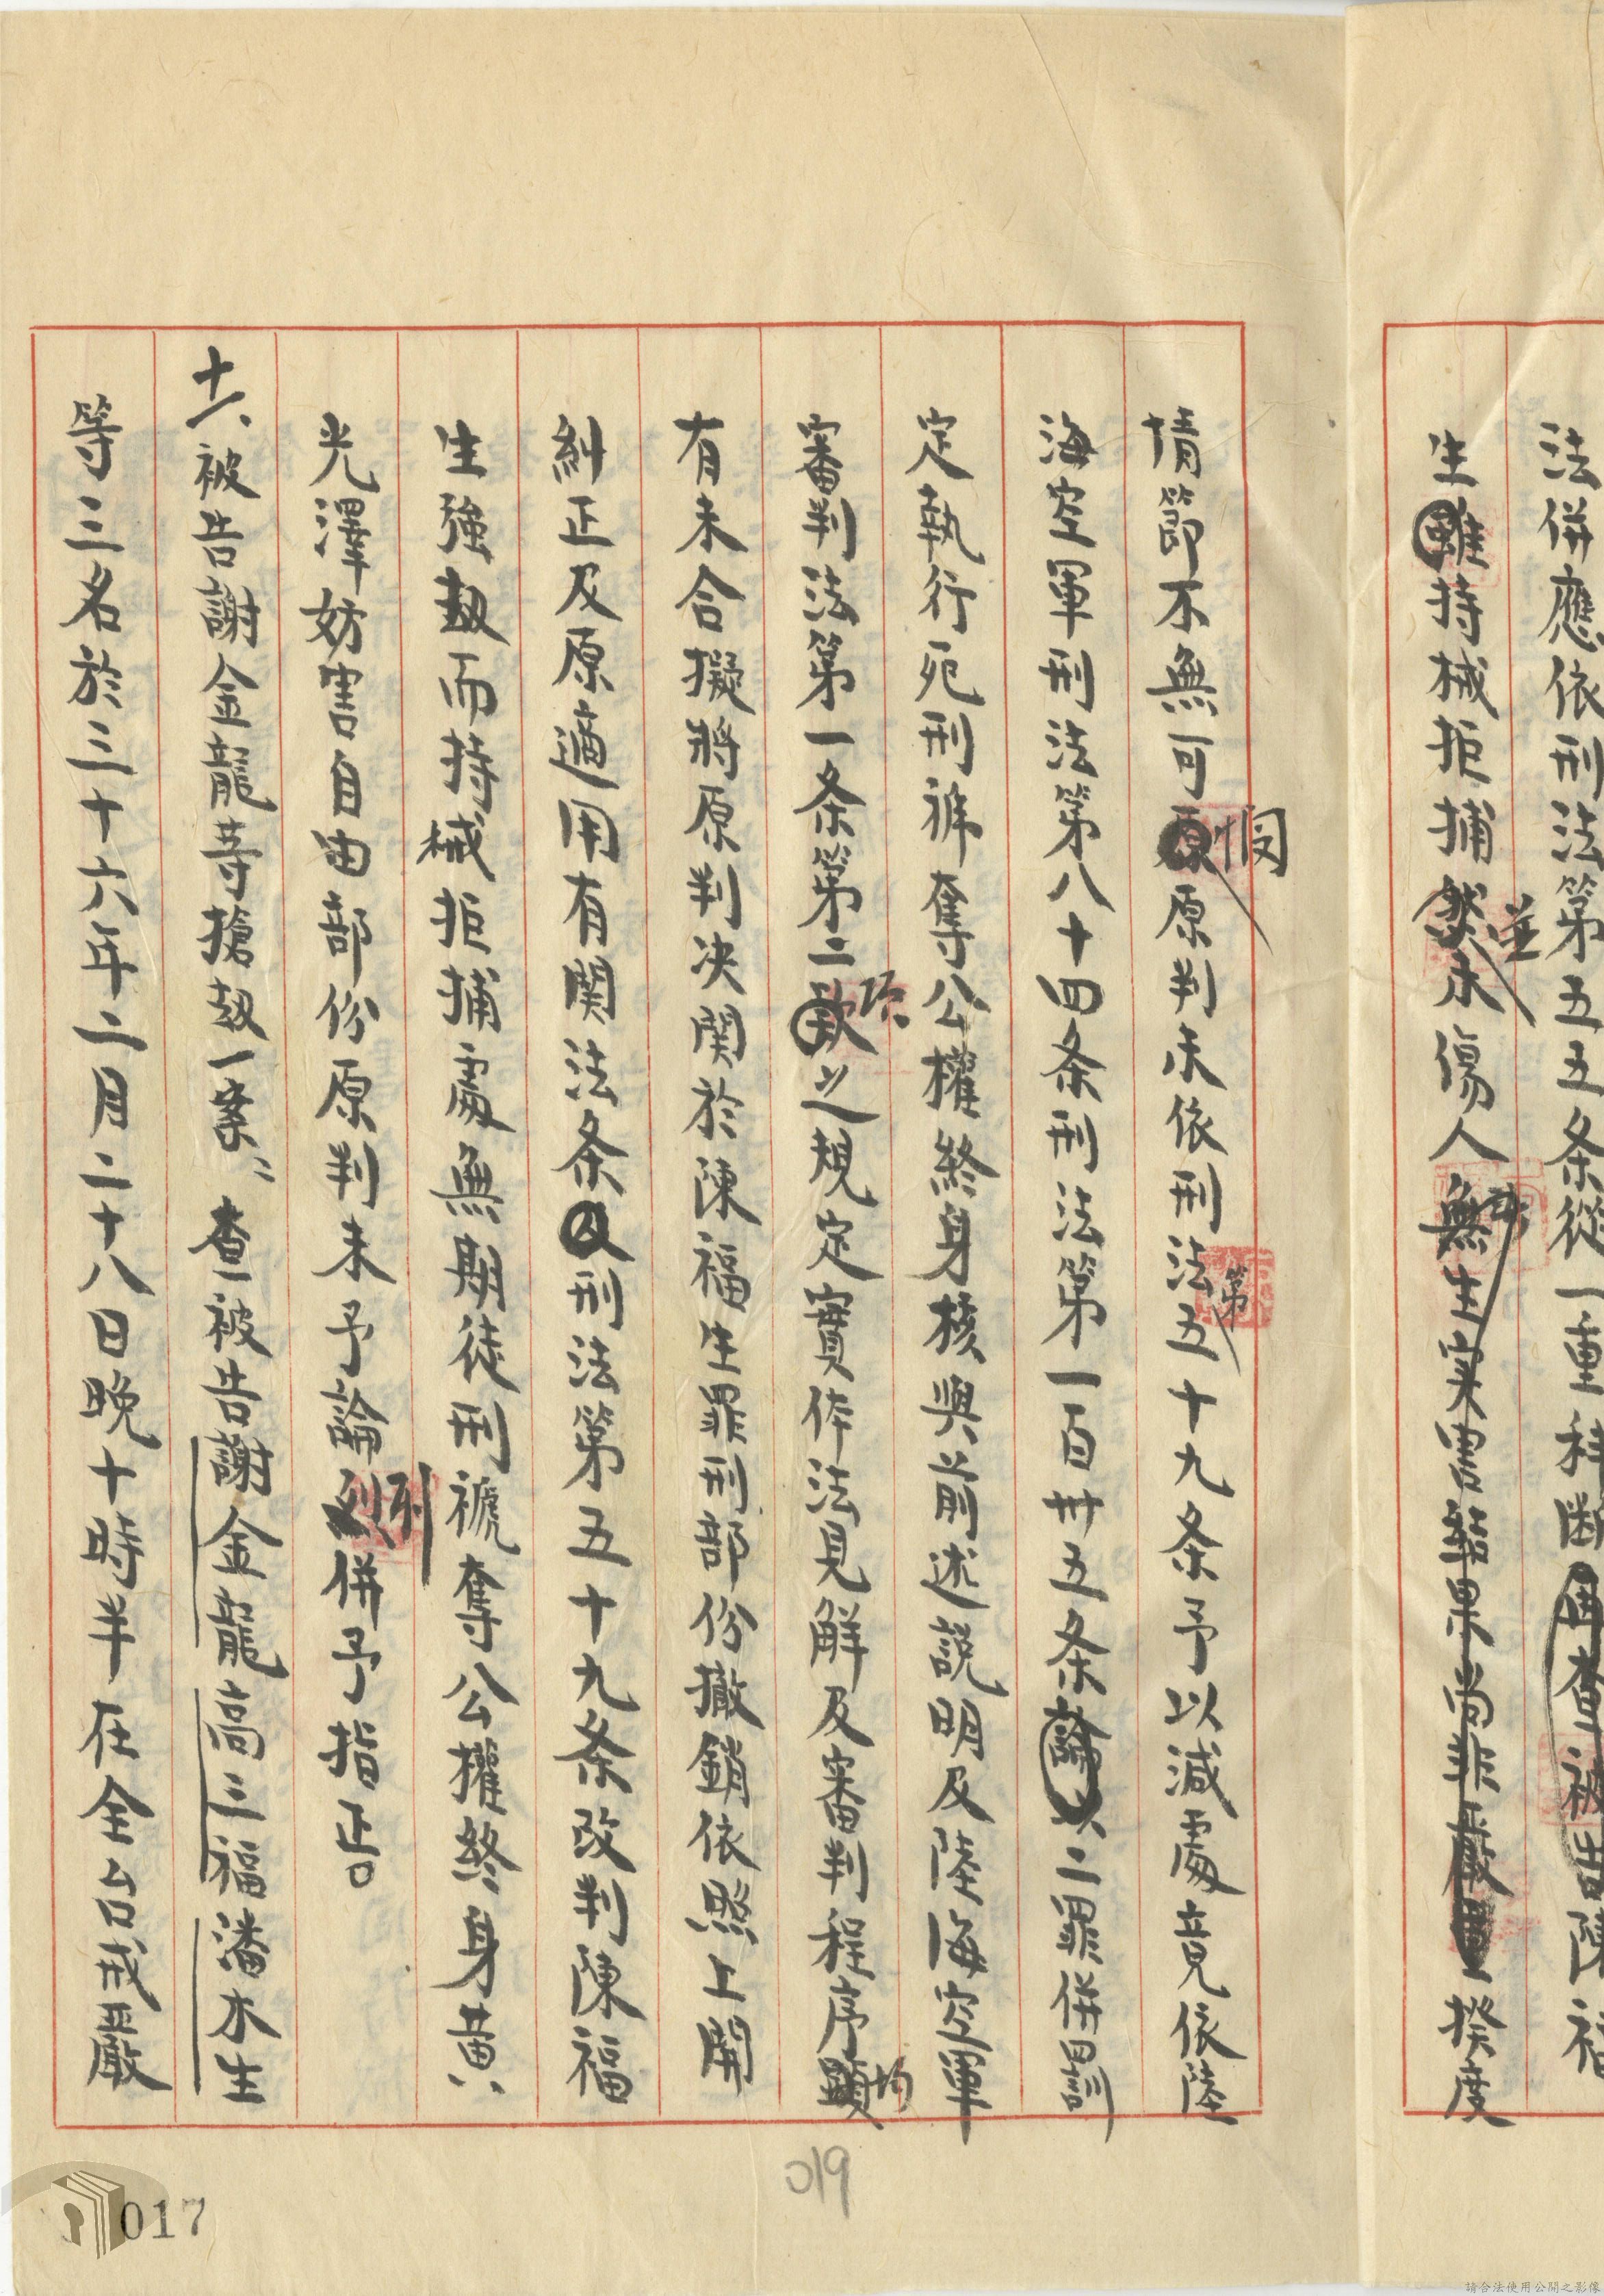 法併應依刑法第五五条從一重科断被告陳福
生持械拒捕並未傷人揆度
情節不無可憫原判未依刑法第五十九条予以減處竟依陸
海空軍刑法第八十四条刑法第一百卅五条二罪併罰
定執行死刑褫奪公權終身核與前述說明及陸海空軍
審判法第一条第二項之規定實体法見解及審判程序均
有未合擬將原判决關於陳福生罪刑部份撤銷依照上開
糾正及原適用有関法条刑法第五十九条改判陳福
生強刼而持械拒捕處無期徒刑褫奪公權終身黃
光澤妨害自由部份原判未予論列併予指正。
十一、被告謝金龍等搶刼一案：查被告謝金龍高三福潘木生
等三名於三十六年二月二十八日晚十時半在全台戒嚴
019
017
請合法使用公開之影像